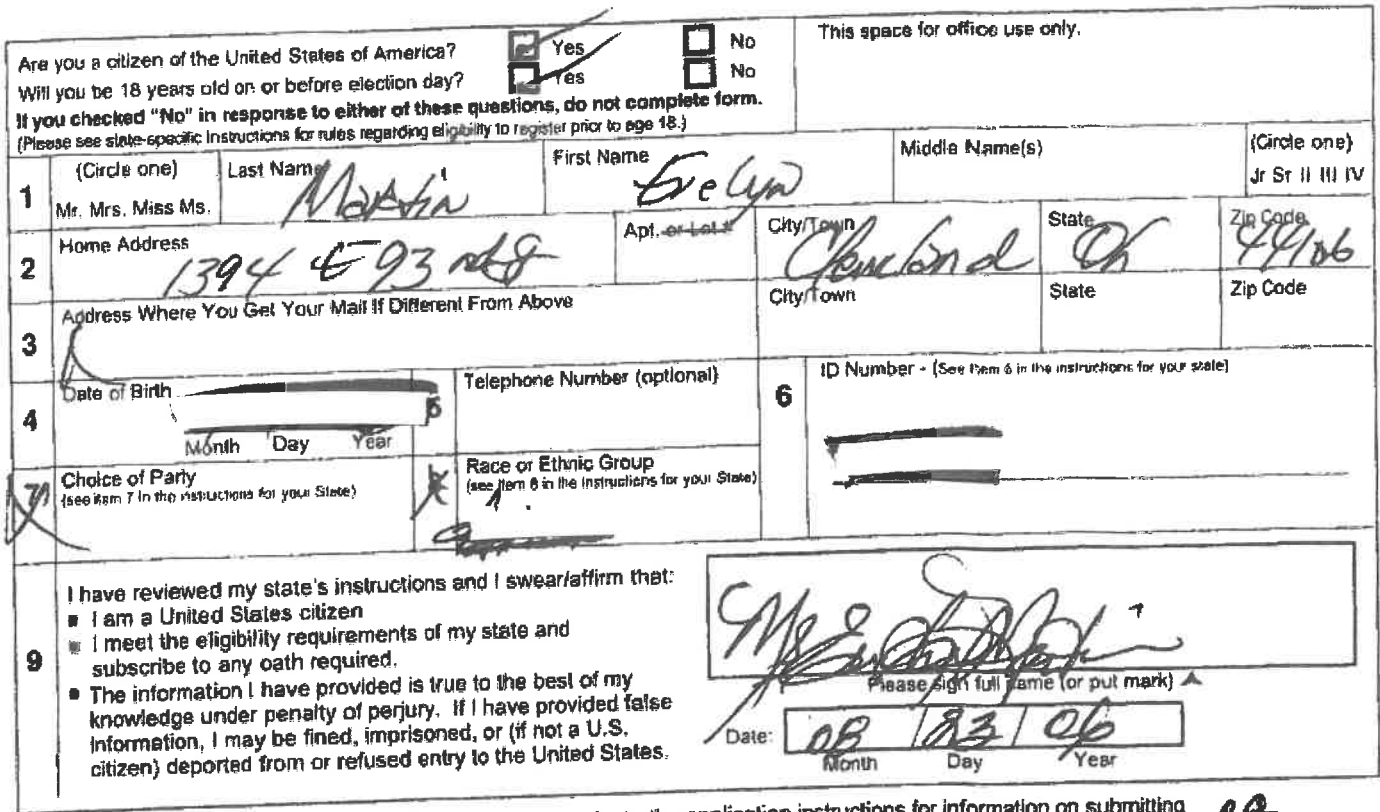 Are you a citizen of the United States of America? Yes No
This space for office use only.
Will you be 18 years old on or before election day? Yes No
If you checked "No" in response to either of these questions, do not complete form.
(Please see state-specific instructions for rules regarding eligibility to register prior to age 18.)
1 (Circle one) Last Name First Name Middle Name(s) (Circle one)
Mr. Mrs. Miss Ms. Martin Evelyn Jr Sr II III IV
2 Home Address Apt. or Lot # City/Town State Zip Code
1394 E 93 Cleveland Oh 44106
3 Address Where You Get Your Mail If Different From Above City/Town State Zip Code
4 Date of Birth Telephone Number (optional) 6 ID Number - (See Item 6 in the instructions for your state)
Month Day Year
7 Choice of Party Race or Ethnic Group
(see item 7 in the instructions for your State) (see item 8 in the instructions for your State)
9 I have reviewed my state's instructions and I swear/affirm that:
■ I am a United States citizen
■ I meet the eligibility requirements of my state and
subscribe to any oath required.
■ The information I have provided is true to the best of my
knowledge under penalty of perjury. If I have provided false
information, I may be fined, imprisoned, or (if not a U.S.
citizen) deported from or refused entry to the United States.
Please sign full name (or put mark) ▲
Date: 08 / 23 / 06
Month Day Year
application instructions for information on submitting